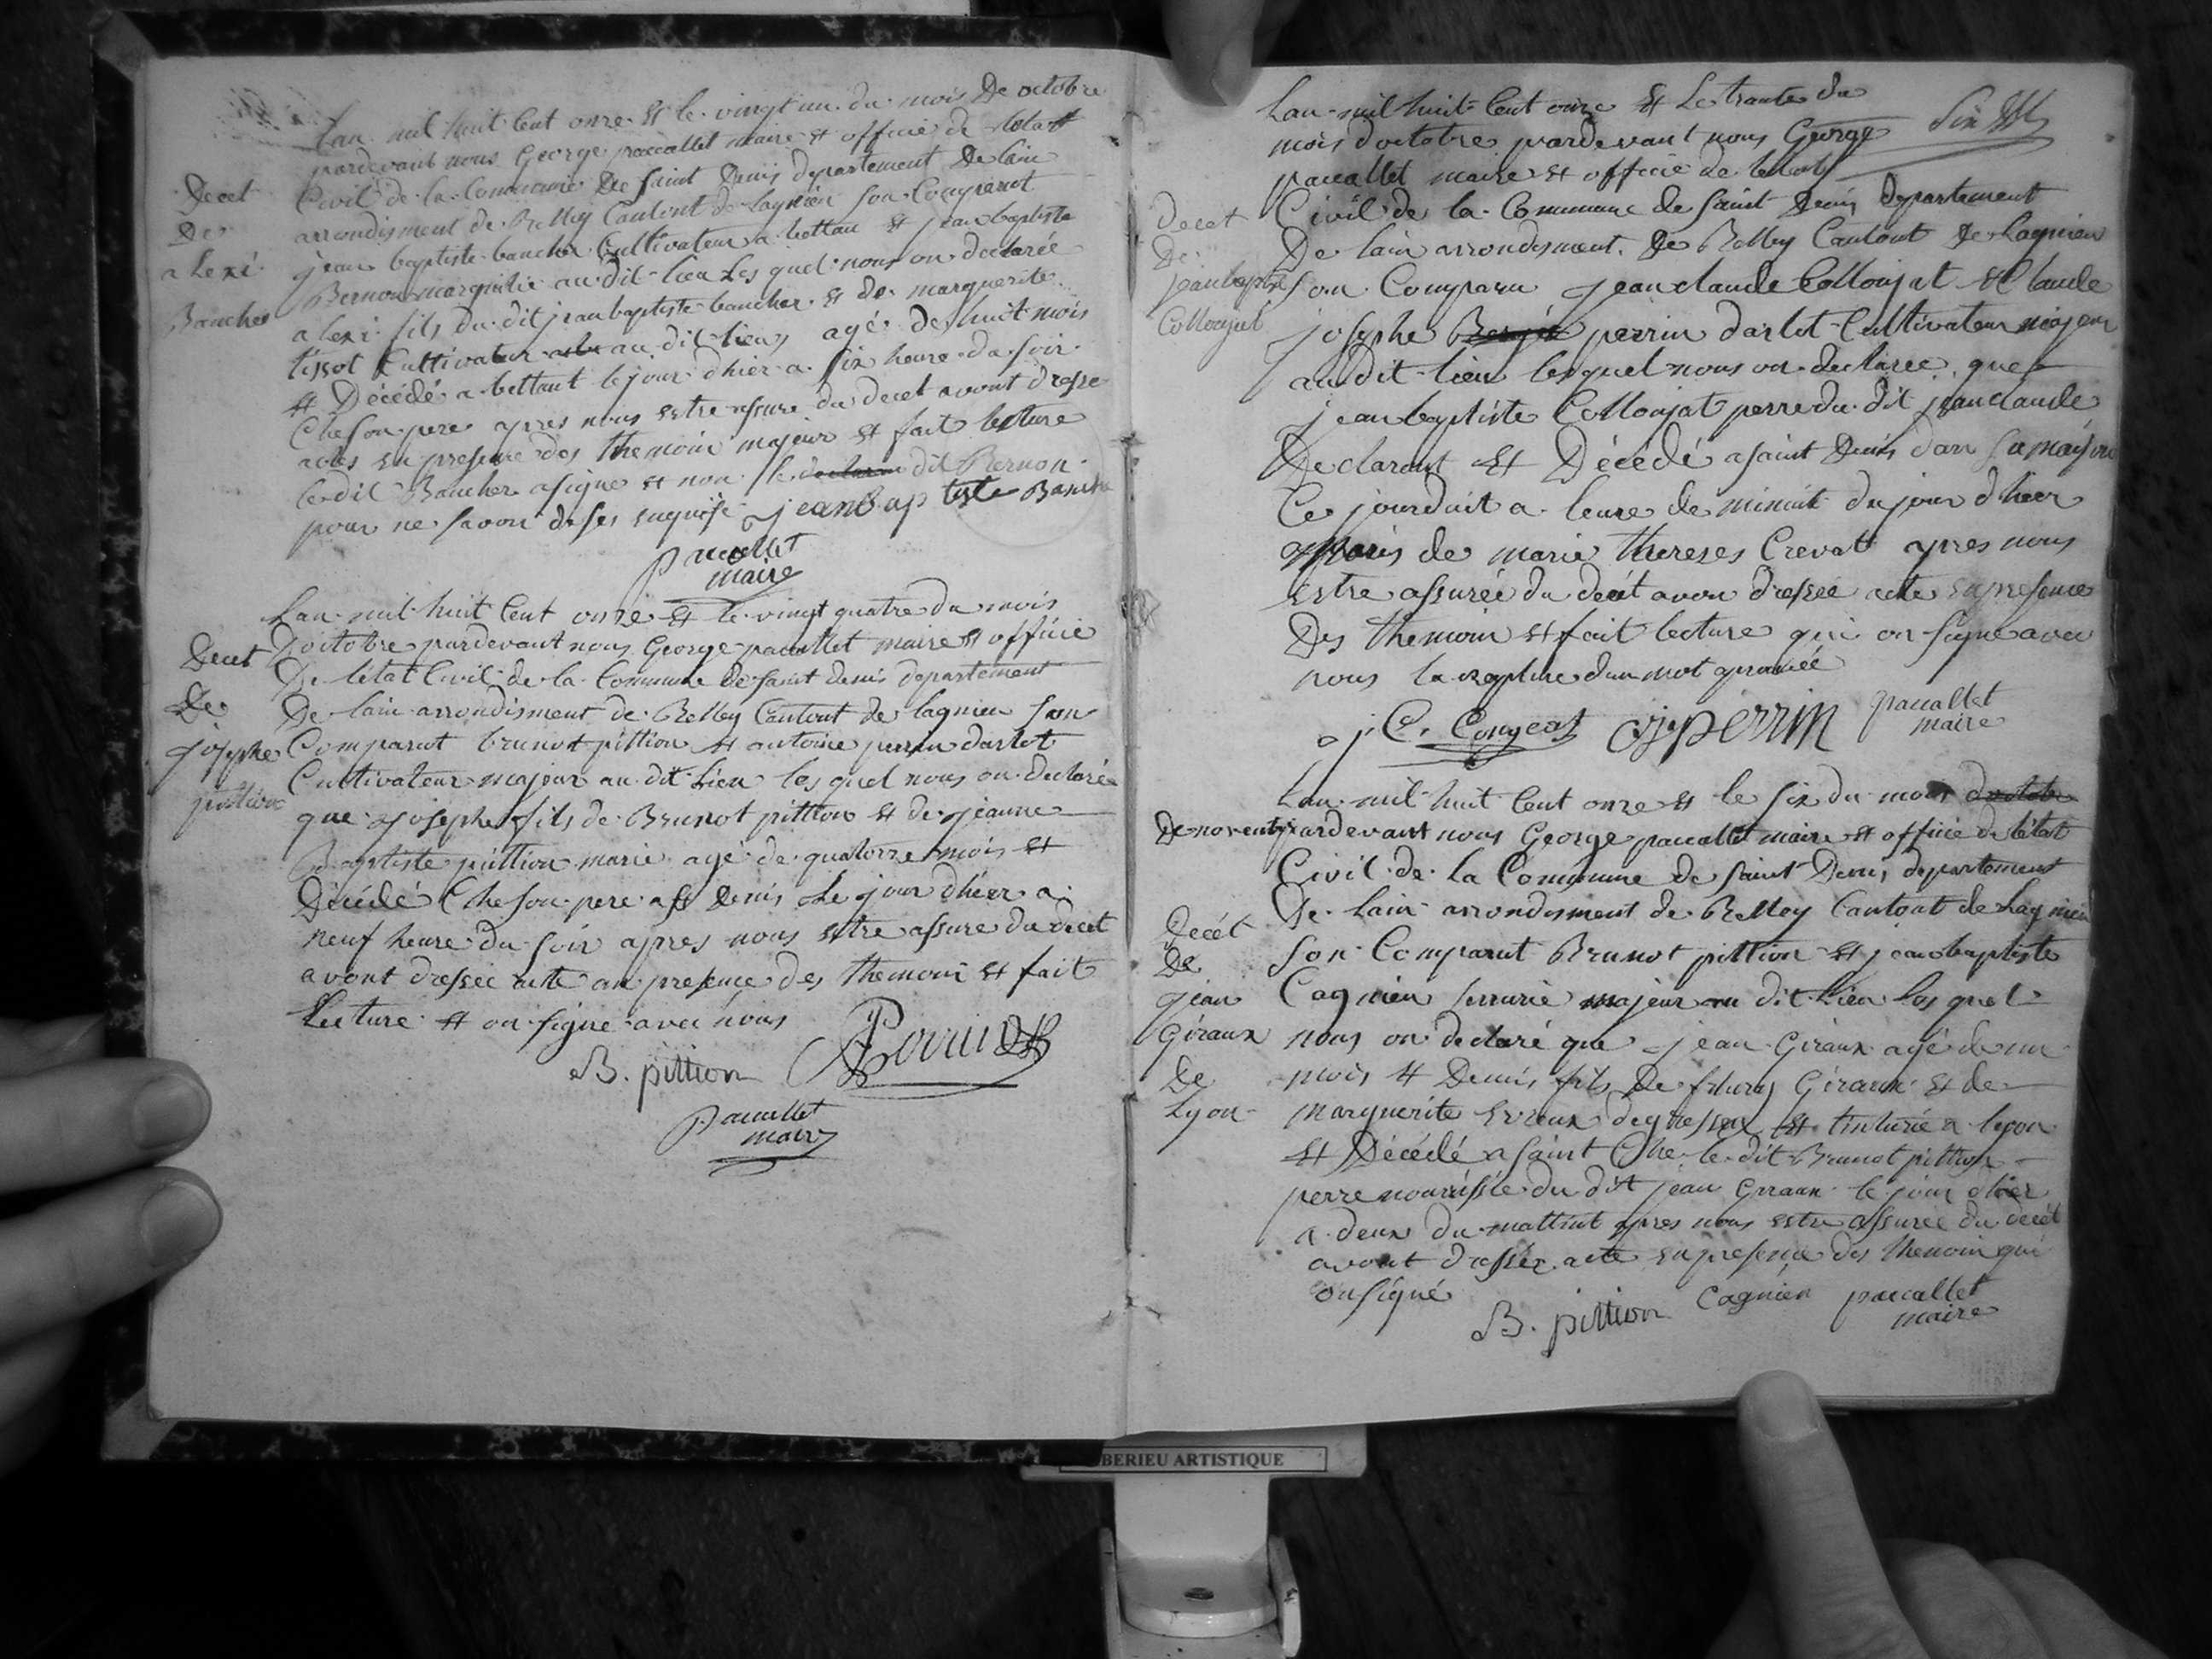 Lan mil huit Cent onze Et le vingt un du mois De octobre
pardevant nous George paucallet maire Et officie de letat
Civil de la Commune De saint Denis departement De lain
arrondisment de Belley Cantont de lagnieu son Comparut
jean baptiste baucher Cultivateur a bettan Et jean baptiste
Bernon au dit lieu Les quel nous on declarée
alexi fils du dit jean baptiste baucher Et de marguerite
tissot Cultivateur au dit lieu agé de huit mois
Et Décédé a bettant le jour d'hier a six heure du soir
Che son pere apres nous estre assure du decet avont dresse
actes en presence des themoin majeur Et fait lecture
le dit Baucher a signe Et non le dit Bernon
pour ne savoir de ses enquise jean Bap tiste Bauche
paucallet
maire
Decet
De
alexi
Baucher
Lan mil huit Cent onze Et le vingt quatre du mois
D'octobre pardevant nous George paucallet maire Et officie
De letat Civil de la Commune de saint denis departement
De lain arrondisment de Belley Cantont de lagnieu son
Comparut brunot pittion Et antoine perrin darlot
Cultivateur majeur au dit Lieu les quel nous on declaré
que josephe fils de Brunot pittion Et de jeanne
Baptiste pittion marie agé de quatorze mois Et
Décédé Che son pere a st Denis Le jour d'hier a
neuf heure du soir apres nous estre assure du decet
avont dressée acte an presence des themoin Et fait
Lecture Et on signe avec nous
B. pittion Perrin
paucallet
maire
Decet
De
josephe
pittion
Lan mil huit Cent onze Et Le trante du
mois d'octobre pardevant nous George
paucallet maire Et officie de letat
Civil de la Commune de saint Denis departement
De lain arrondisment De Belley Cantont De Lagnieu
son Comparu jean claude Collonjat Et Claude
josephe perrin darlot Cultivateur majeur
au dit lieu lesquel nous on declarée que
jean baptiste Collonjat perre du dit jean claude
Declarant Et Décédé a saint Denis dan sa mayson
Ce jourduit a leure de minuit du jour d'hier
Maris de marie thereses Crevat apres nous
estre assurée du decét avon dressée acte en presence
Des themoin Et fait lecture qui on signe avec
nous la rapture dun mot aprouvée
j C. Congeat C j perrin paucallet
maire
Decet
De
jean baptiste
Collonjat
Lan mil huit Cent onze Et le six du mois doctobre
De novembre pardevant nous George paucallet maire Et officie de létat
Civil de la Commune de saint Denis departement
De Lain arrondisment de Belley Cantont de Lagnieu
son Comparut Brunot pittion Et jean baptiste
Cagnien serrurie majeur au dit Lieu les quel
nous on declaré que jean Giraux agé de un
mois Et Demis fils De fleury Giraux Et de
marguerite Et tinturie a lyon
Et Décédé a saint Che le dit Brunot pittion
perre nourissie du dit jean Giraux le jour d'hier
a deux du mattint apres nous estre assurée du decét
avont dressée acte en presence des themoin qui
on signé
B. pittion Cagnien paucallet
maire
Decét
De
jean
Giraux
De
Lyon
BERIEU ARTISTIQUE